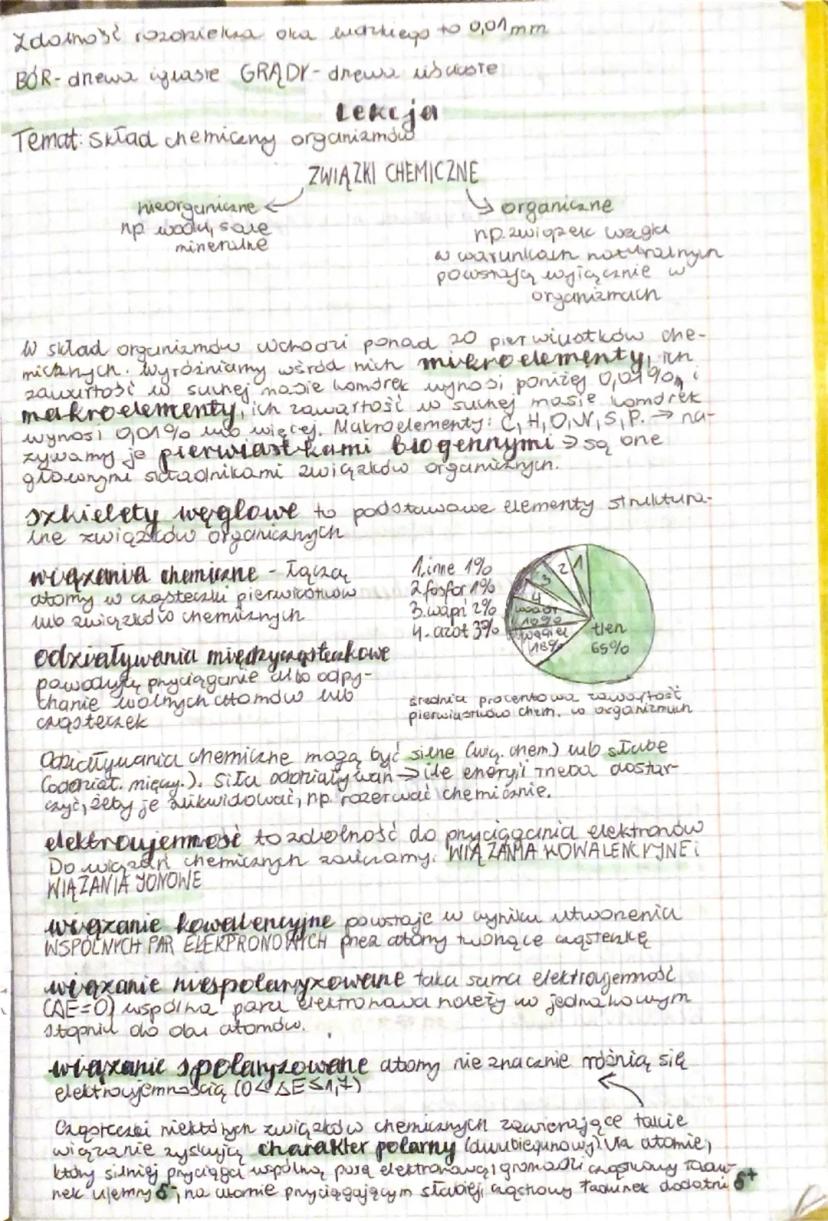 Zdolność rozdzielcza oka ludzkiego to 0,01mm
BÓR- drzewa iglaste GRĄDY- drzewa liściaste
Lekcja
Temat: Skład chemiczny organizmów
ZWIĄZKI CHEMICZNE
nieorganiczne ← → organiczne
np. woda, sole
mineralne
np. związek węgla
w warunkach naturalnych
powstają wyłącznie w
organizmach
W skład organizmów wchodzi ponad 20 pierwiastków che-
micznych. Wyróżniamy wśród nich mikroelementy, ich
zawartość w suchej masie komórek wynosi poniżej 0,01%, i
makroelementy, ich zawartość w suchej masie komórek
wynosi 0,01% lub więcej. Makroelementy: C, H, O, N, S, P. → na-
zywamy je pierwiastkami biogennymi → są one
głównymi składnikami związków organicznych.
szkielety węglowe to podstawowe elementy struktura-
lne związków organicznych
wiązania chemiczne - łączą
atomy w cząsteczki pierwiastków
lub związków chemicznych
1. inne 1%
2. fosfor 1%
3. wapń 2%
4. azot 3%
1
2
3
4
wodór
10%
węgiel
18%
tlen
65%
odziaływania międzycząsteczkowe
powodują przyciąganie albo odpy-
chanie wolnych atomów lub
cząsteczek
średnia procentowa zawartość
pierwiastków chem. w organizmach
Odziaływania chemiczne mogą być silne (wią. chem.) lub słabe
(oddziat. między.). Siła oddziaływań → ile energii trzeba dostar-
czyć, żeby je zlikwidować, np. rozerwać chemicznie.
elektroujemność to zdolność do przyciągania elektronów
Do wiązań chemicznych zaliczamy: WIĄZANIA KOWALENCYJNE i
WIĄZANIA JONOWE
wiązanie kowalencyjne powstaje w wyniku utworzenia
WSPÓLNYCH PAR ELEKTRONOWYCH przez atomy tworzące cząsteczkę
wiązanie niespolaryzowane taka sama elektroujemność
(ΔE=0) wspólna para elektronowa należy w jednakowym
stopniu do obu atomów.
wiązanie spolaryzowane atomy nie znacznie różnią się
elektroujemnością (0<ΔE≤1,7)
Cząsteczki niektórych związków chemicznych zawierające takie
wiązanie zyskują charakter polarny (dwubiegunowy) Na atomie,
który silniej przyciąga wspólną parę elektronową, gromadzi cząstkowy ładu-
nek ujemny δ⁻, na atomie przyciągającym słabiej, cząstkowy ładunek dodatni δ⁺